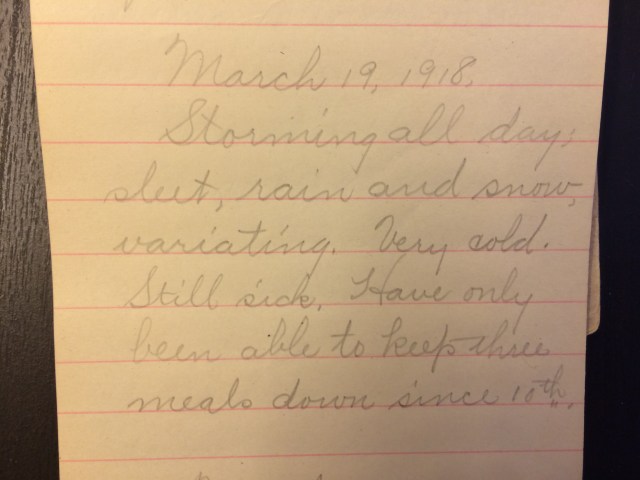 March 19, 1918.
Storming all day;
sleet, rain and snow,
variating. Very cold.
Still sick. Have only
been able to keep three
meals down since 10th.